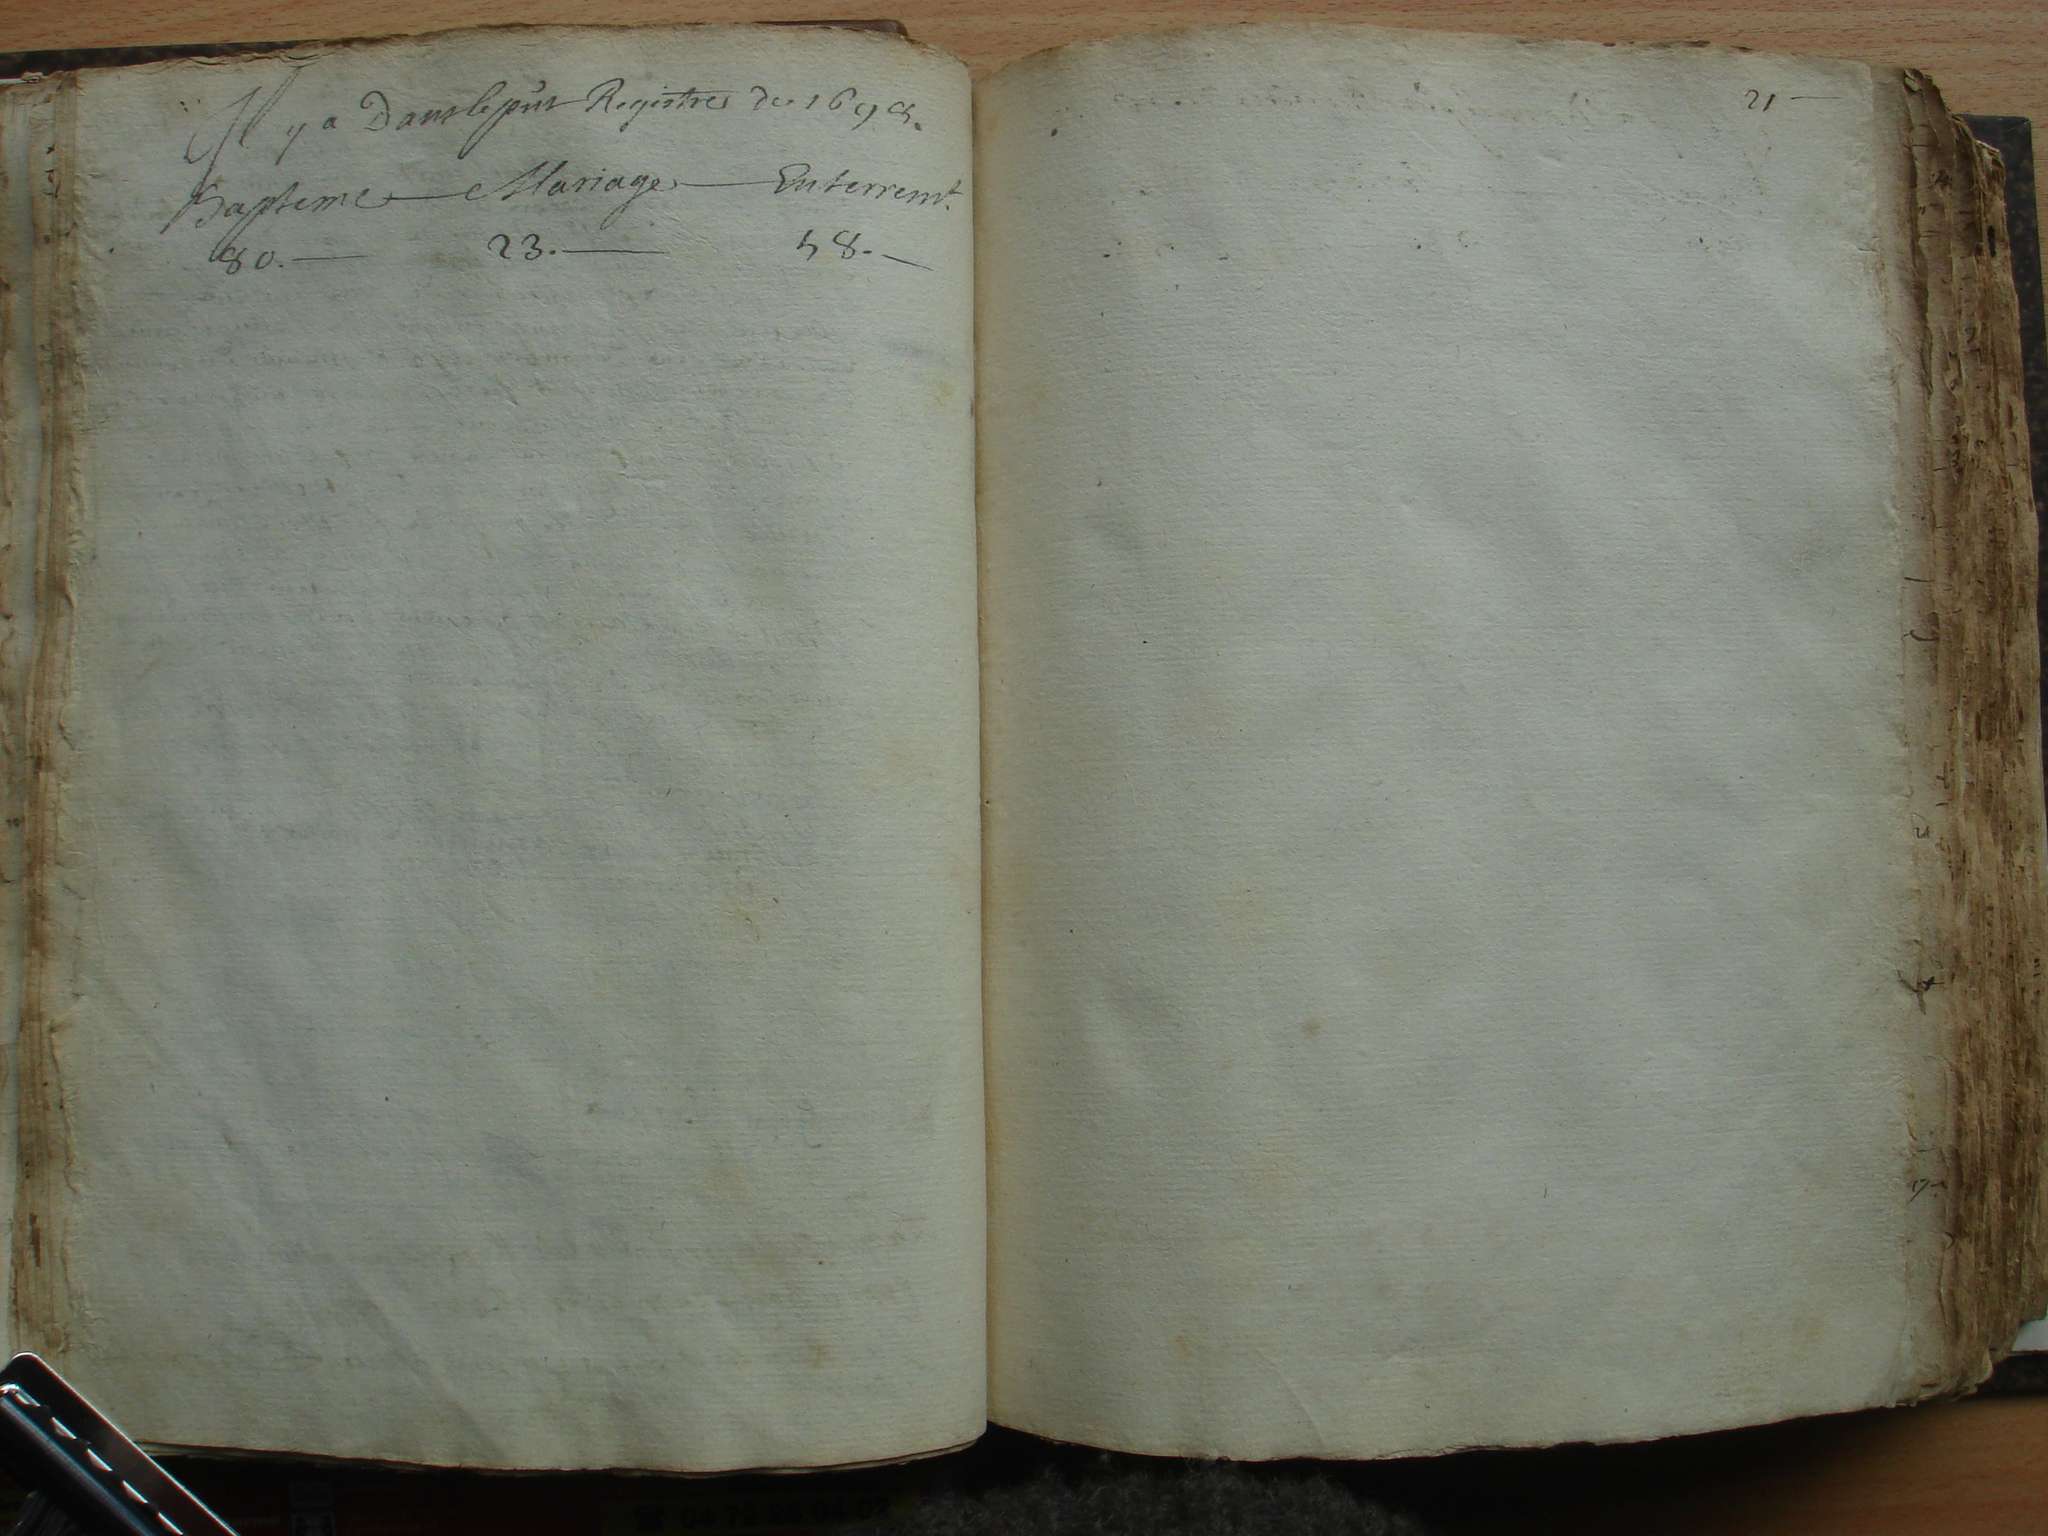 Il y a Dans le pñt Registre de 1698.
Bapteme — Mariage — Enterremt.
80. — 23. — 58. —
21 —